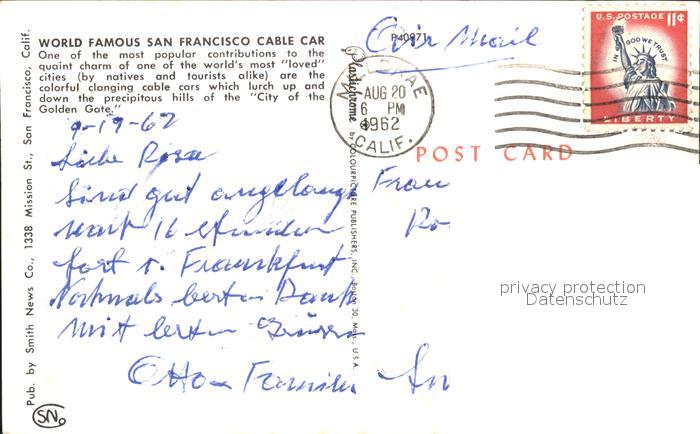 WORLD FAMOUS SAN FRANCISCO CABLE CAR
One of the most popular contributions to the
quaint charm of one of the world's most "loved"
cities (by natives and tourists alike) are the
colorful clanging cable cars which lurch up and
down the precipitous hills of the "City of the
Golden Gate."
P40971
Air Mail
U.S. POSTAGE 11¢
IN GOD WE TRUST
LIBERTY
AUG 20
6 PM
1962
CALIF.
POST CARD
9-19-62
Liebe Rosa
Sind gut angelangt
16 Stunden
fort v. Frankfurt
Nochmals besten Dank
Mit besten Grüssen
Otto u Familie
Frau
Ro
privacy protection
Datenschutz
Pub. by Smith News Co., 1338 Mission St., San Francisco, Calif.
Plastichrome by COLOURPICTURE PUBLISHERS, INC., Boston 30, Mass., U.S.A.
SN